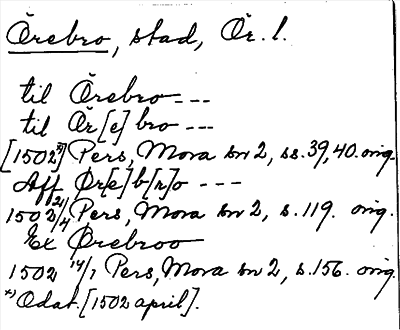 Örebro, stad, Ör. l.
til Örebro ---
til Ör[e]bro ---
[1502 x)] Pers, Mora bn 2, ss. 39, 40. orig.
Aff Ør[e]b[r]o ---
1502 21/4 Pers, Mora bn 2, s. 119. orig.
Ex Ørebroo
1502 14/1 Pers, Mora bn 2, s. 156. orig.
x) Odat. [1502 april].